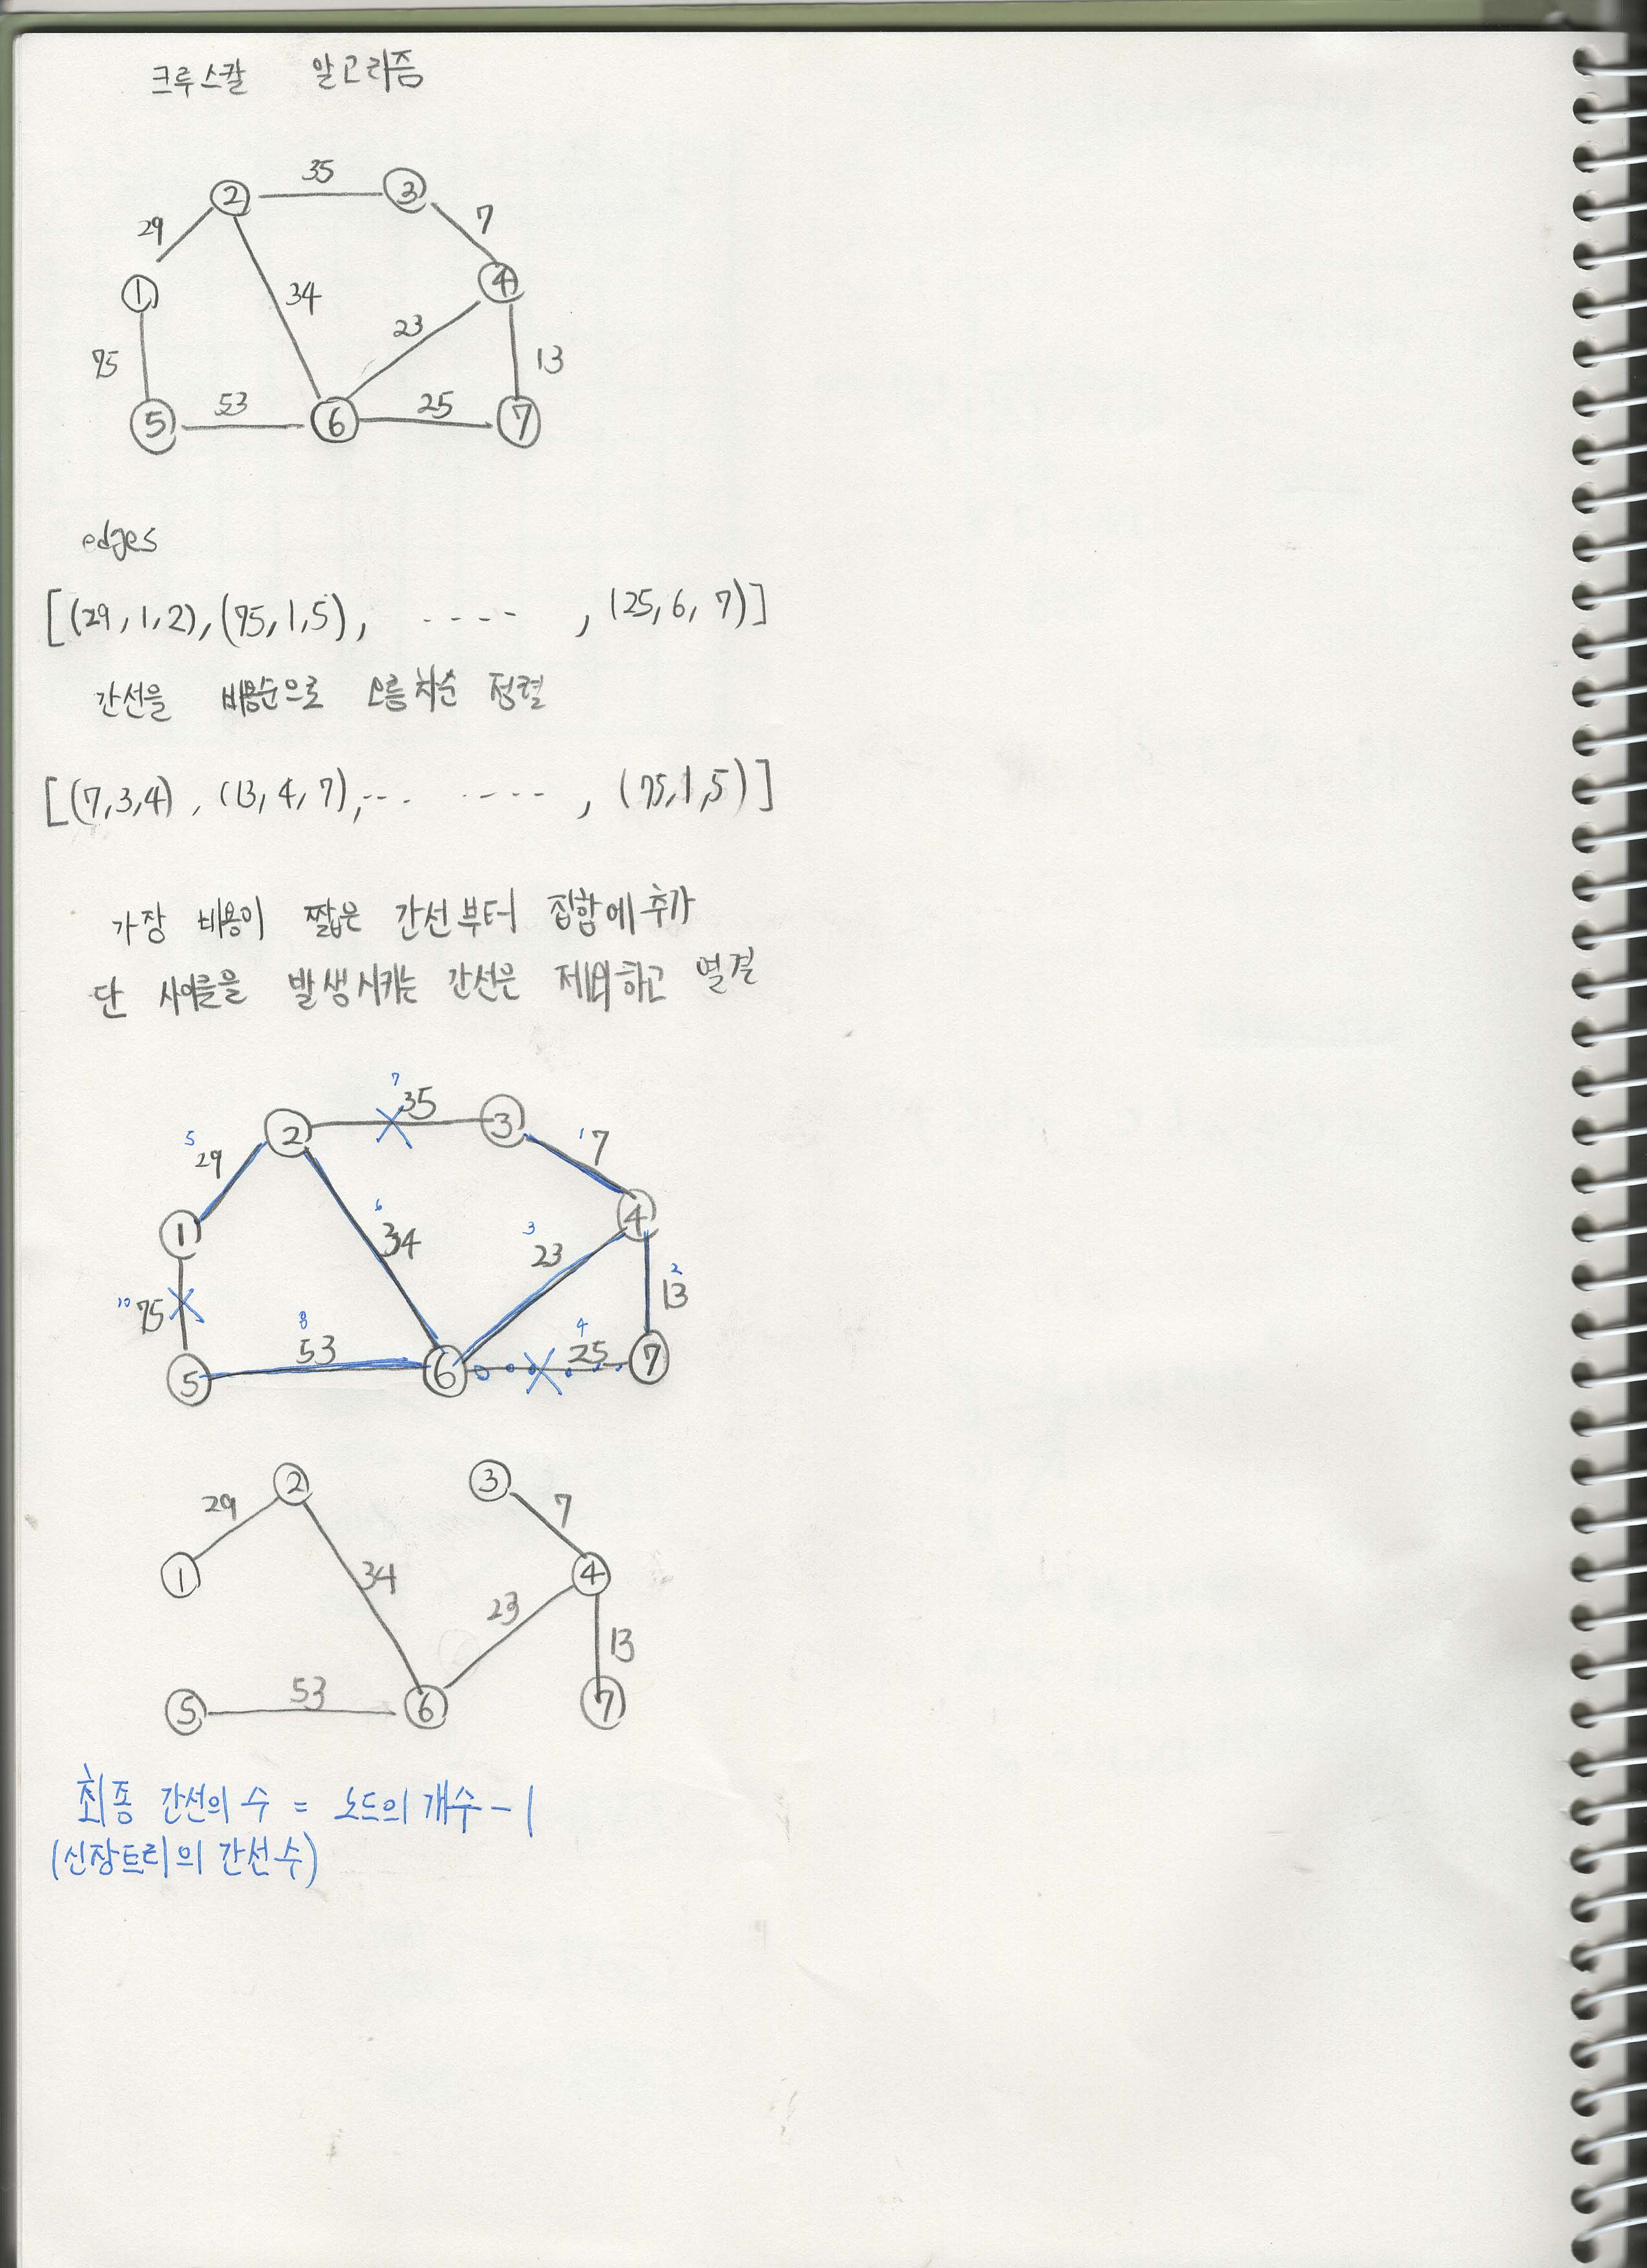 크루스칼 알고리즘
35
2 3
29 7
1 34 4
23
75 13
53 25
5 6 7
edges
[(29,1,2),(75,1,5), ---- ,(25,6,7)]
간선을 비용순으로 오름차순 정렬
[(7,3,4),(13,4,7),--- ----,(75,1,5)]
가장 비용이 짧은 간선부터 집합에 추가
단 사이클을 발생시키는 간선은 제외하고 연결
7 35
2 3
5 29 1 7
1 6 34 3 23 4
2 13
10 75 8 53 4 25
5 6 7
2 3
29 7
1 34 4
23
13
53
5 6 7
최종 간선의 수 = 노드의 개수 - 1
(신장트리의 간선 수)